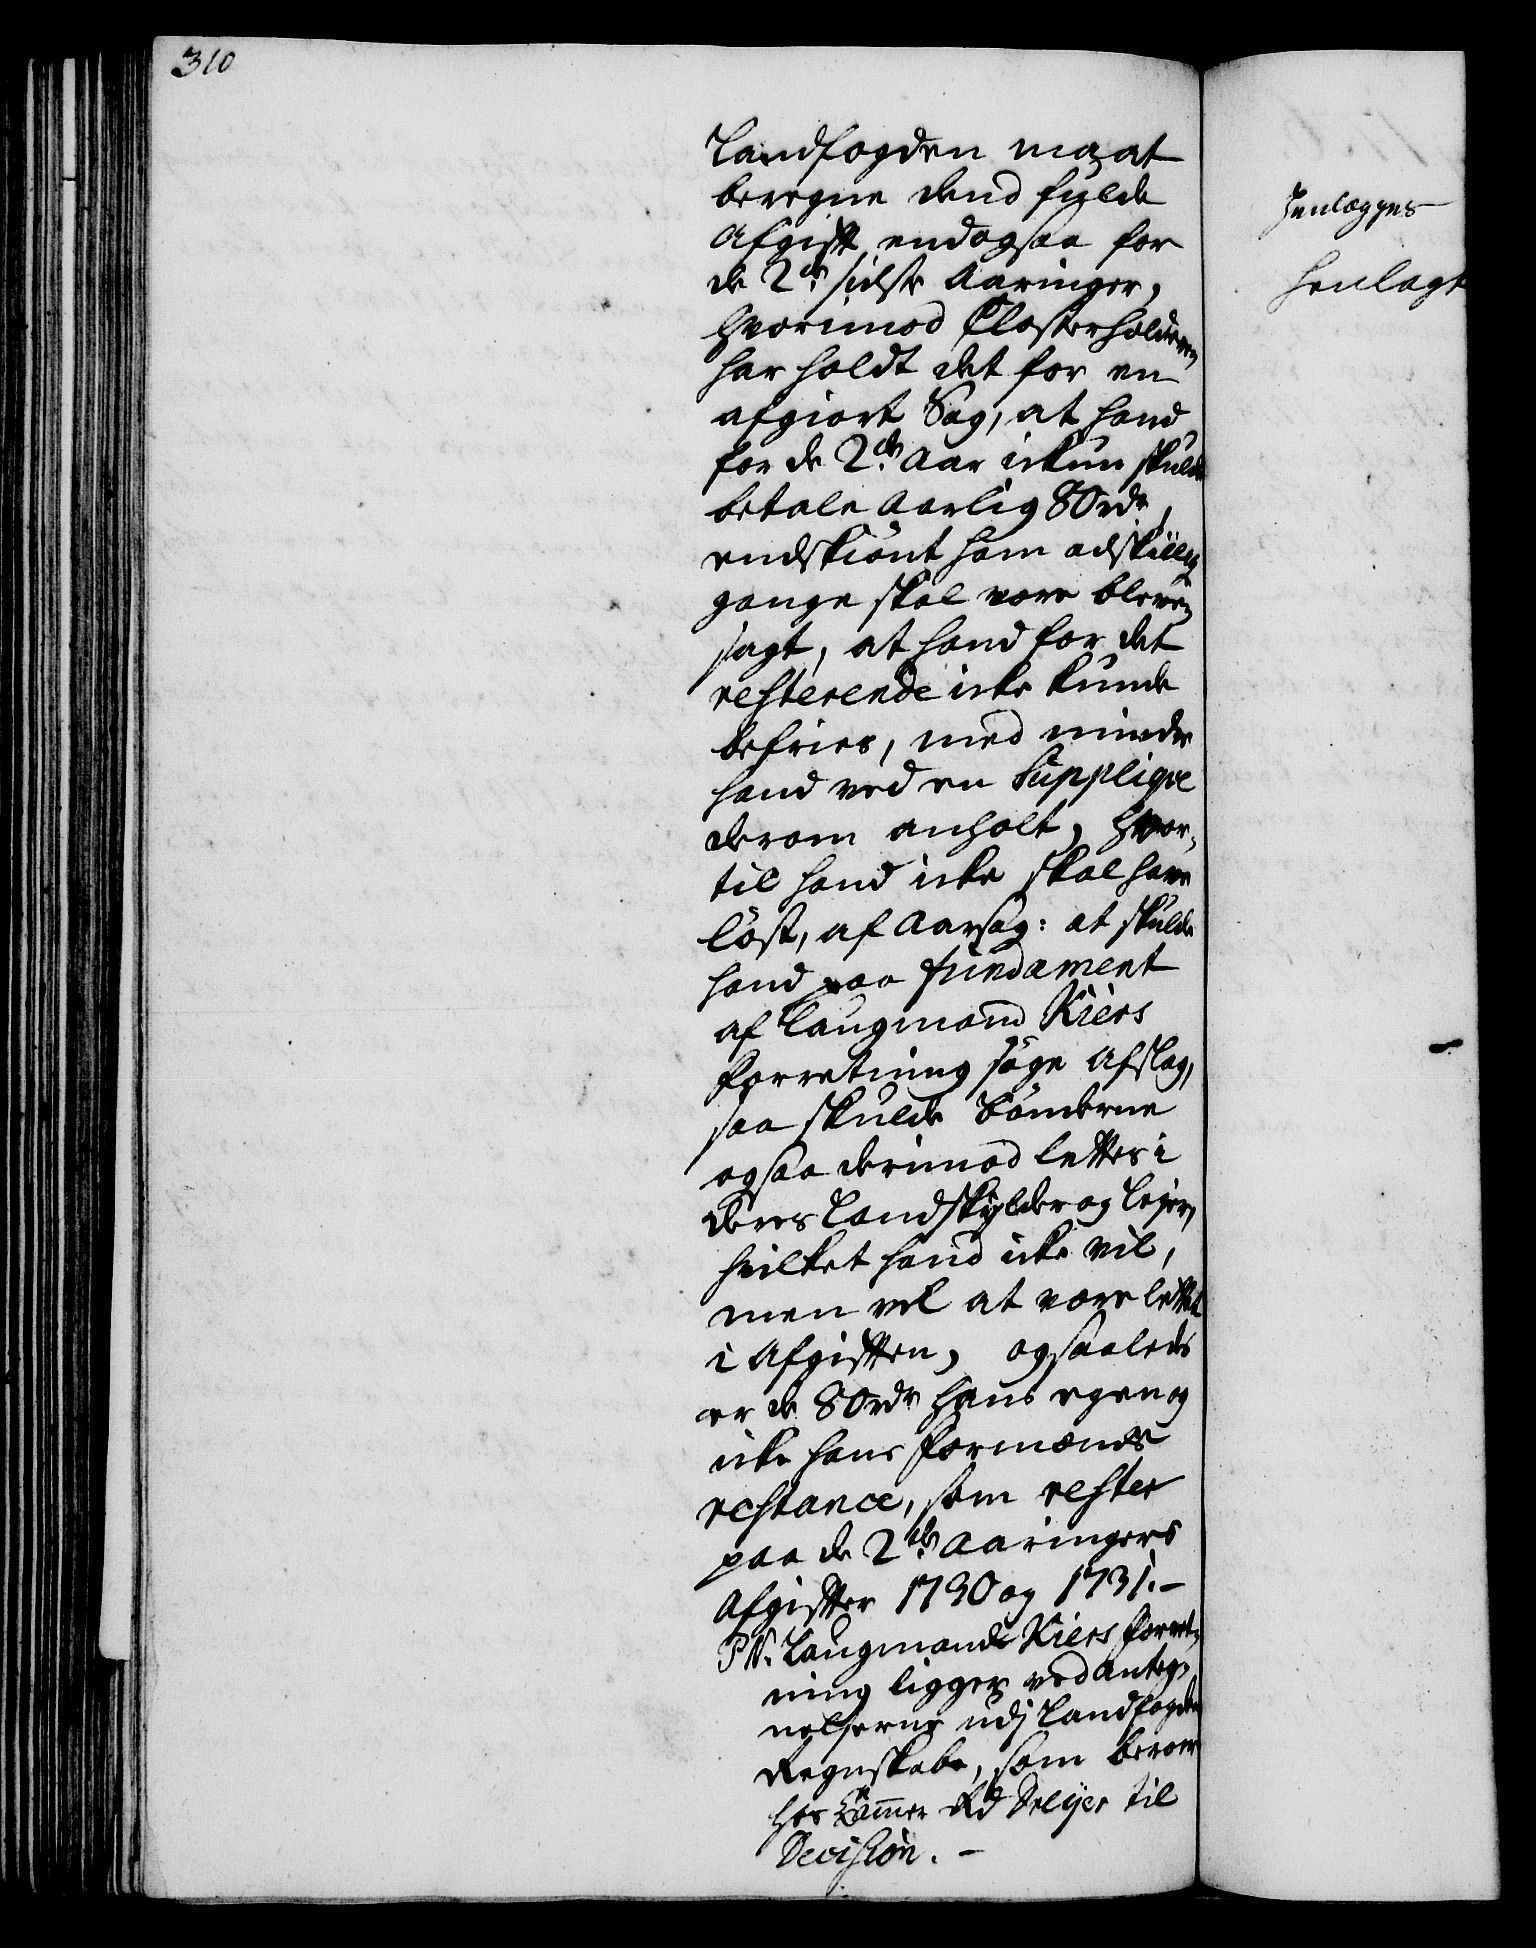 310
Landfogden maat
beregne dend fulde
Afgift endogsaa for
de 2de sidste Aaringer,
hvorimod Closterholderen
har holdt det for en
afgiort Sag, at hand
for de 2de Aar ickun skulde
betale Aarlig 80rdr,
endskiönt ham adskillig
gange skal være bleven
sagt, at hand for det
resterende icke kunde
befries, med mindre
hand ved en Supplique
derom anholt, hvor-
til hand icke skal have
löst, af Aarsag: at skulde
hand paa fundament
af Laugmand Kiers
Forretning söge Afslag,
saa skulde bönderne
ogsaa derimod lettes i
deres Landskylder og Leyer,
hvilket hand icke vil,
men vel at være lettet
i Afgiften, og saaleds
er de 80rdr hans egen og
icke hans Formands
restance, som rester
paa de 2de Aaringers
Afgifter 1730 og 1731.-
PN. Laugmands Kiers Forret-
ning ligger ved Anteg-
nelserne udj Landfogdens
Regnskabe, som beroer
hos Cammer Rd Selyer til
Decision. -
Henlægges
Henlagt